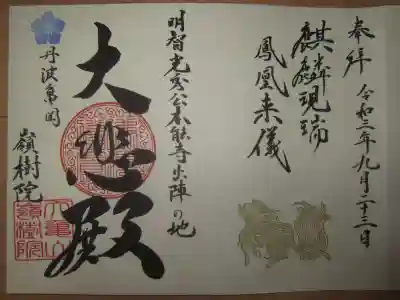 奉拝 令和三年九月二十三日
麒麟現瑞
鳳凰来儀
明智光秀公本能寺出陣の地
大悲殿
丹波亀岡
嶺樹院